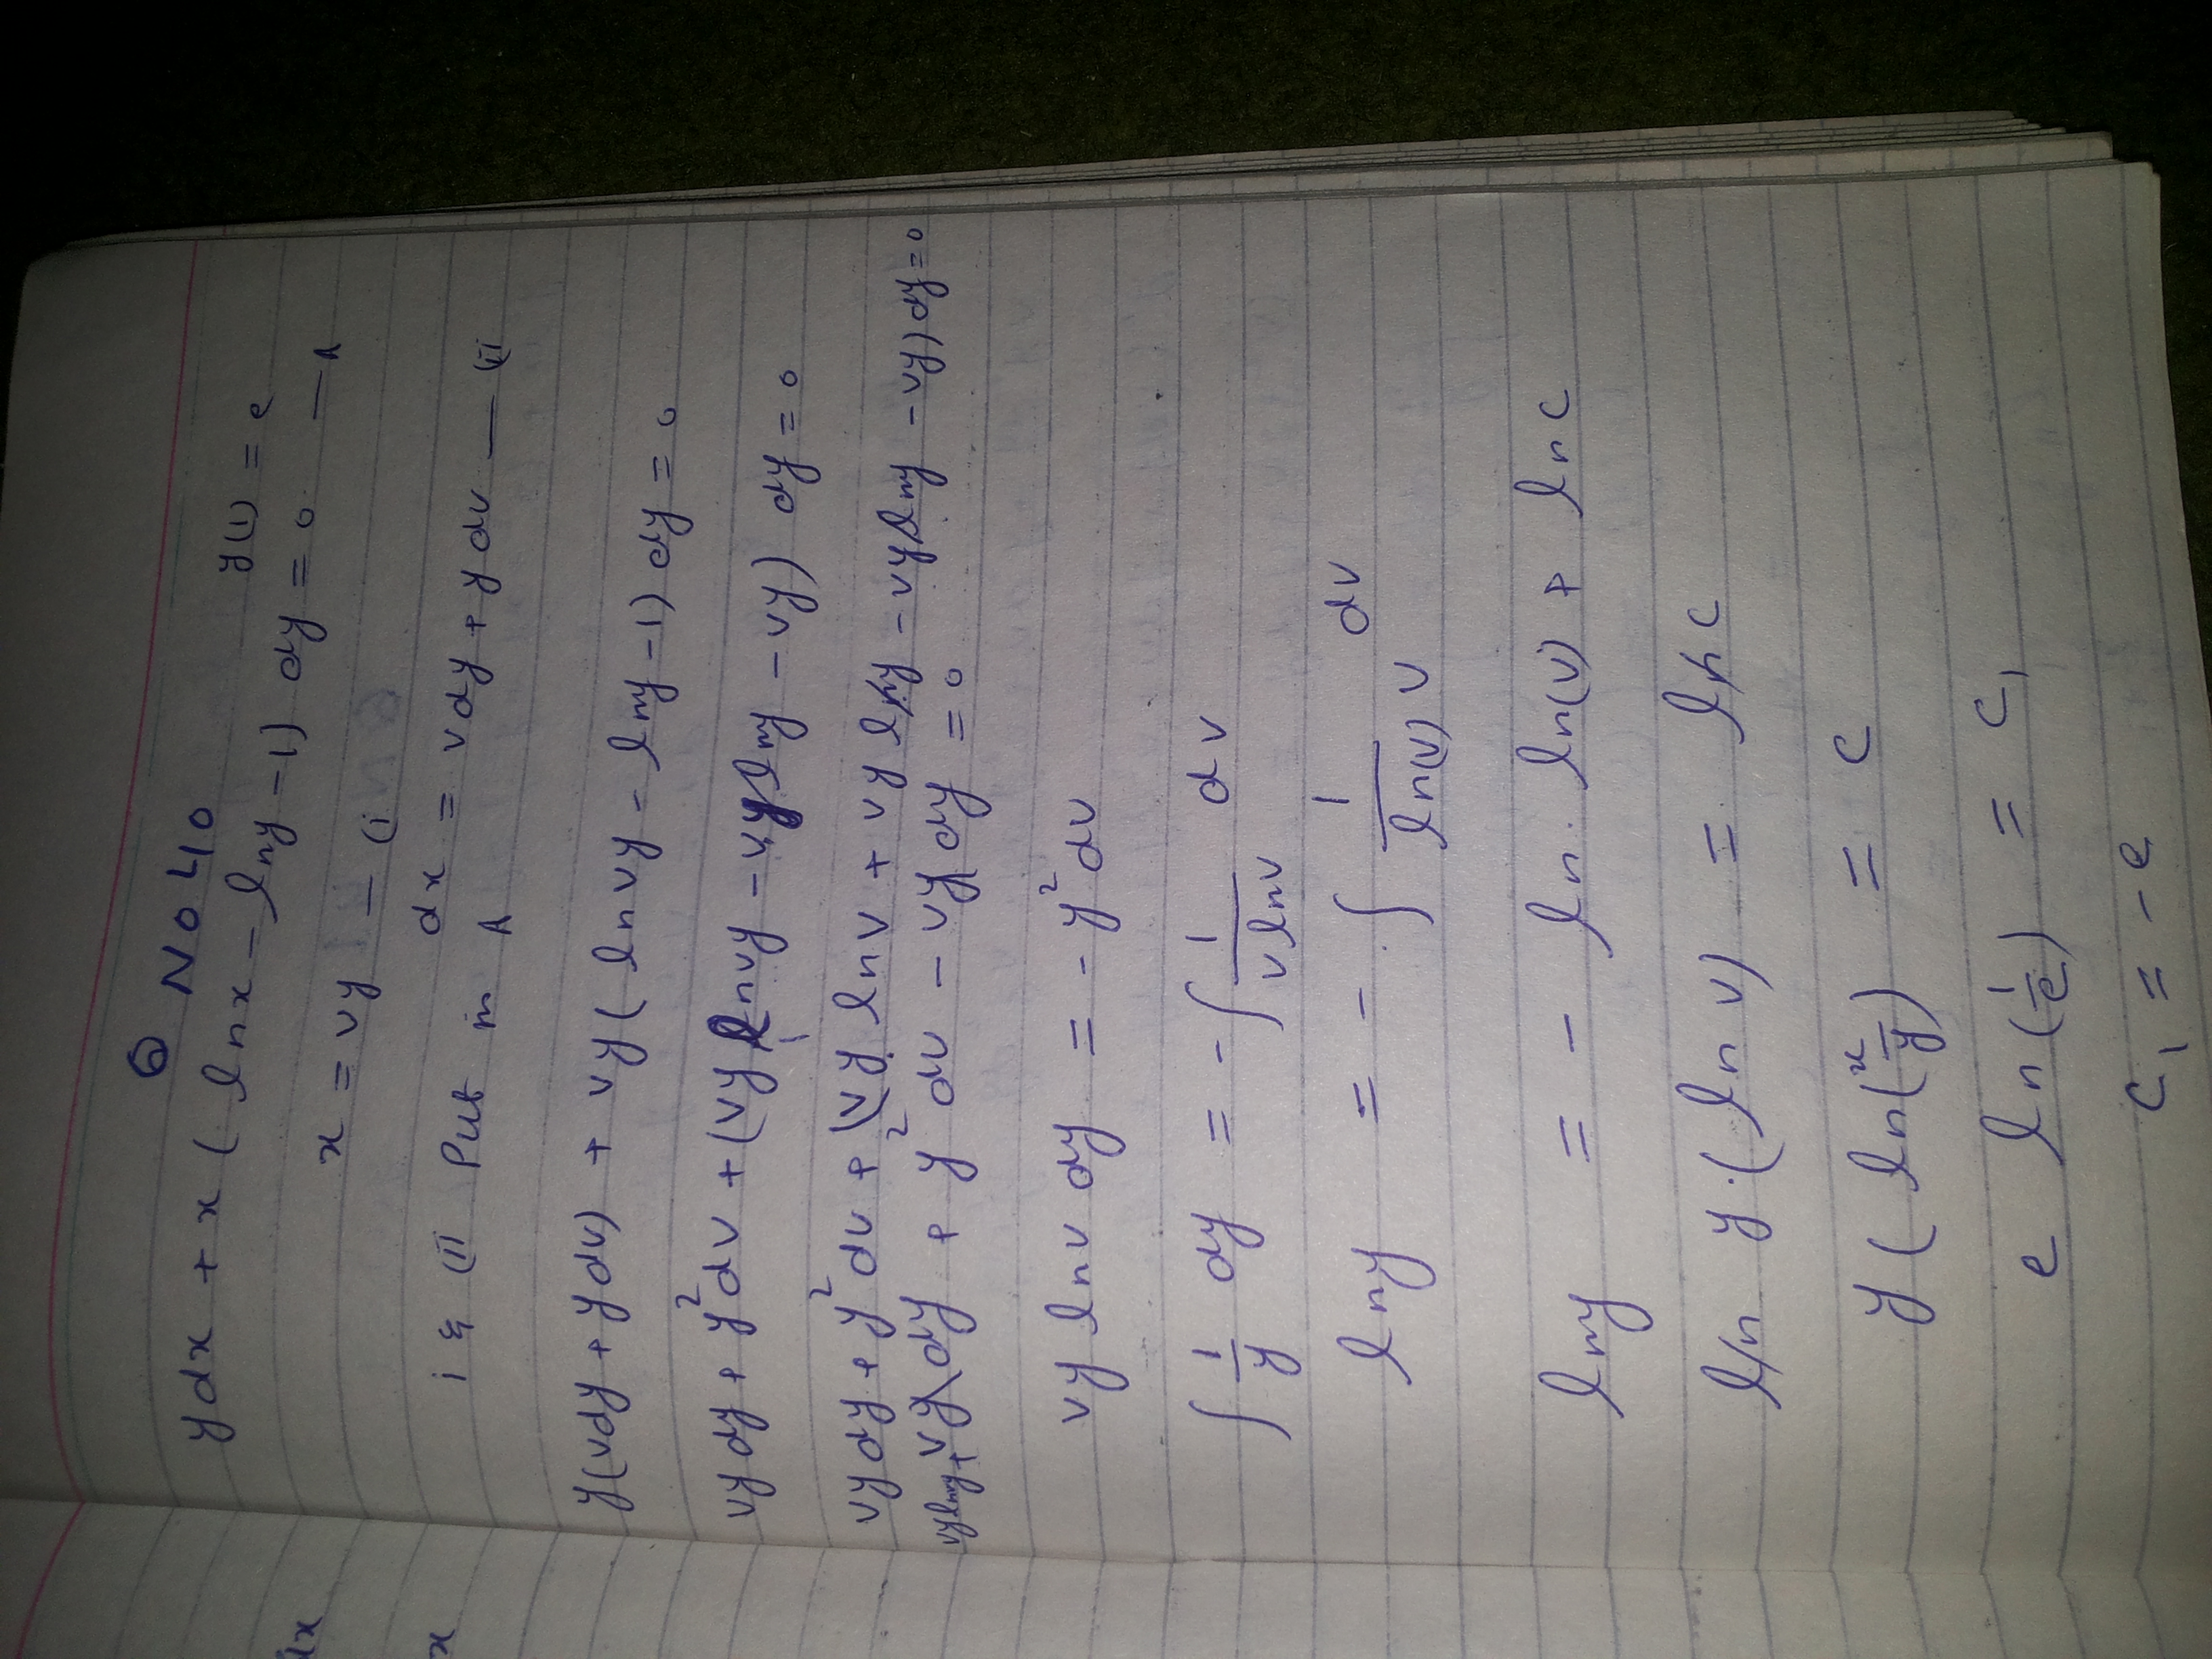 Q No 40
y(1) = e
ydx + x ( lnx - lny - 1) dy = 0 — A
x = vy — (i
dx = vdy + y dv — (ii
i & (ii Put in A
y(vdy + y dv) + vy ( ln vy - lny - 1) dy = 0
vy dy + y² dv + (vy ln vy - vy lny - vy) dy = 0
vy dy + y² dv + (vy ln v + vy lny - vy lny - vy) dy = 0
vy dy + y² dv - vy dy = 0
vy ln v dy = - y² dv
∫ 1/y dy = - ∫ 1/(v ln v) dv
lny = - ∫ 1/(ln(v) v) dv
lny = - ln . ln(v) + ln c
ln y . ( ln v) = ln c
y ( ln(x/y) = c
e ln (1/e) = c₁
c₁ = - e
dx
x